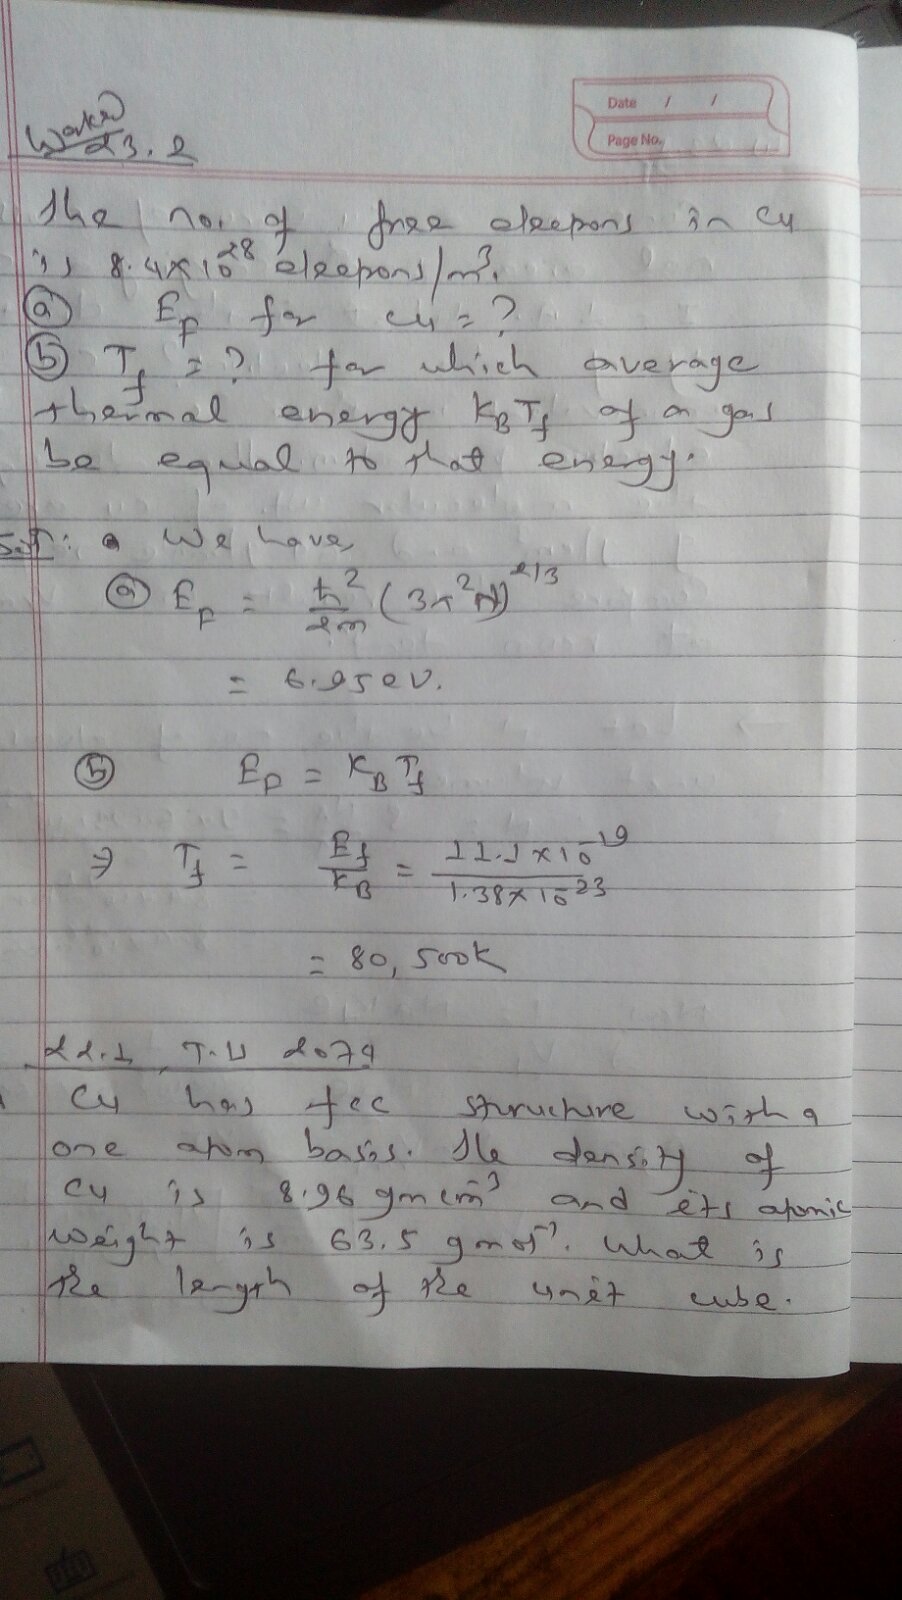 Date / /
Page No.
Worked
23.2
The no. of free elecpons in Cu
is 8.4×10²⁸ elecpons/m³.
(a) E_F for Cu = ?
(b) T_f = ? for which average
thermal energy K_B T_f of a gas
be equal to that energy.
Solⁿ: We have,
(a) E_F = ħ²/2m (3π²N)^2/3
= 6.95 eV.
(b) E_F = K_B T_f
⇒ T_f = E_f/K_B = 11.1×10⁻¹⁹/1.38×10⁻²³
= 80,500K
22.1, T.U 2074
Cu has fcc structure with a
one atom basis. The density of
Cu is 8.96 gm cm⁻³ and its atomic
weight is 63.5 gmol⁻¹. What is
the length of the unit cube.